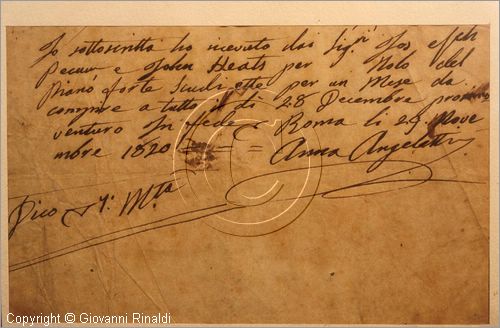 Io sottoscritta ho ricevuto dai Sig.ri Jos
e John Keats per Nolo del
Piano forte Scudi otto per un Mese da
compire a tutto il di 28 Decembre pros
venturo In fede Roma li 29 Nove
mbre 1820 = = = Anna Angeletti
Dico 
Copyright © Giovanni Rinaldi